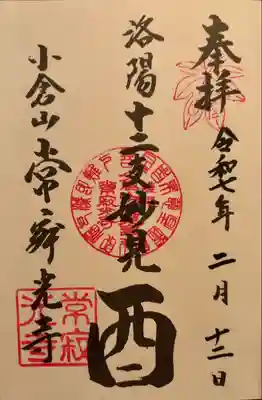 奉拝
令和七年 二月 十二日
洛陽十二支妙見
酉
小倉山常寂光寺
常寂光寺